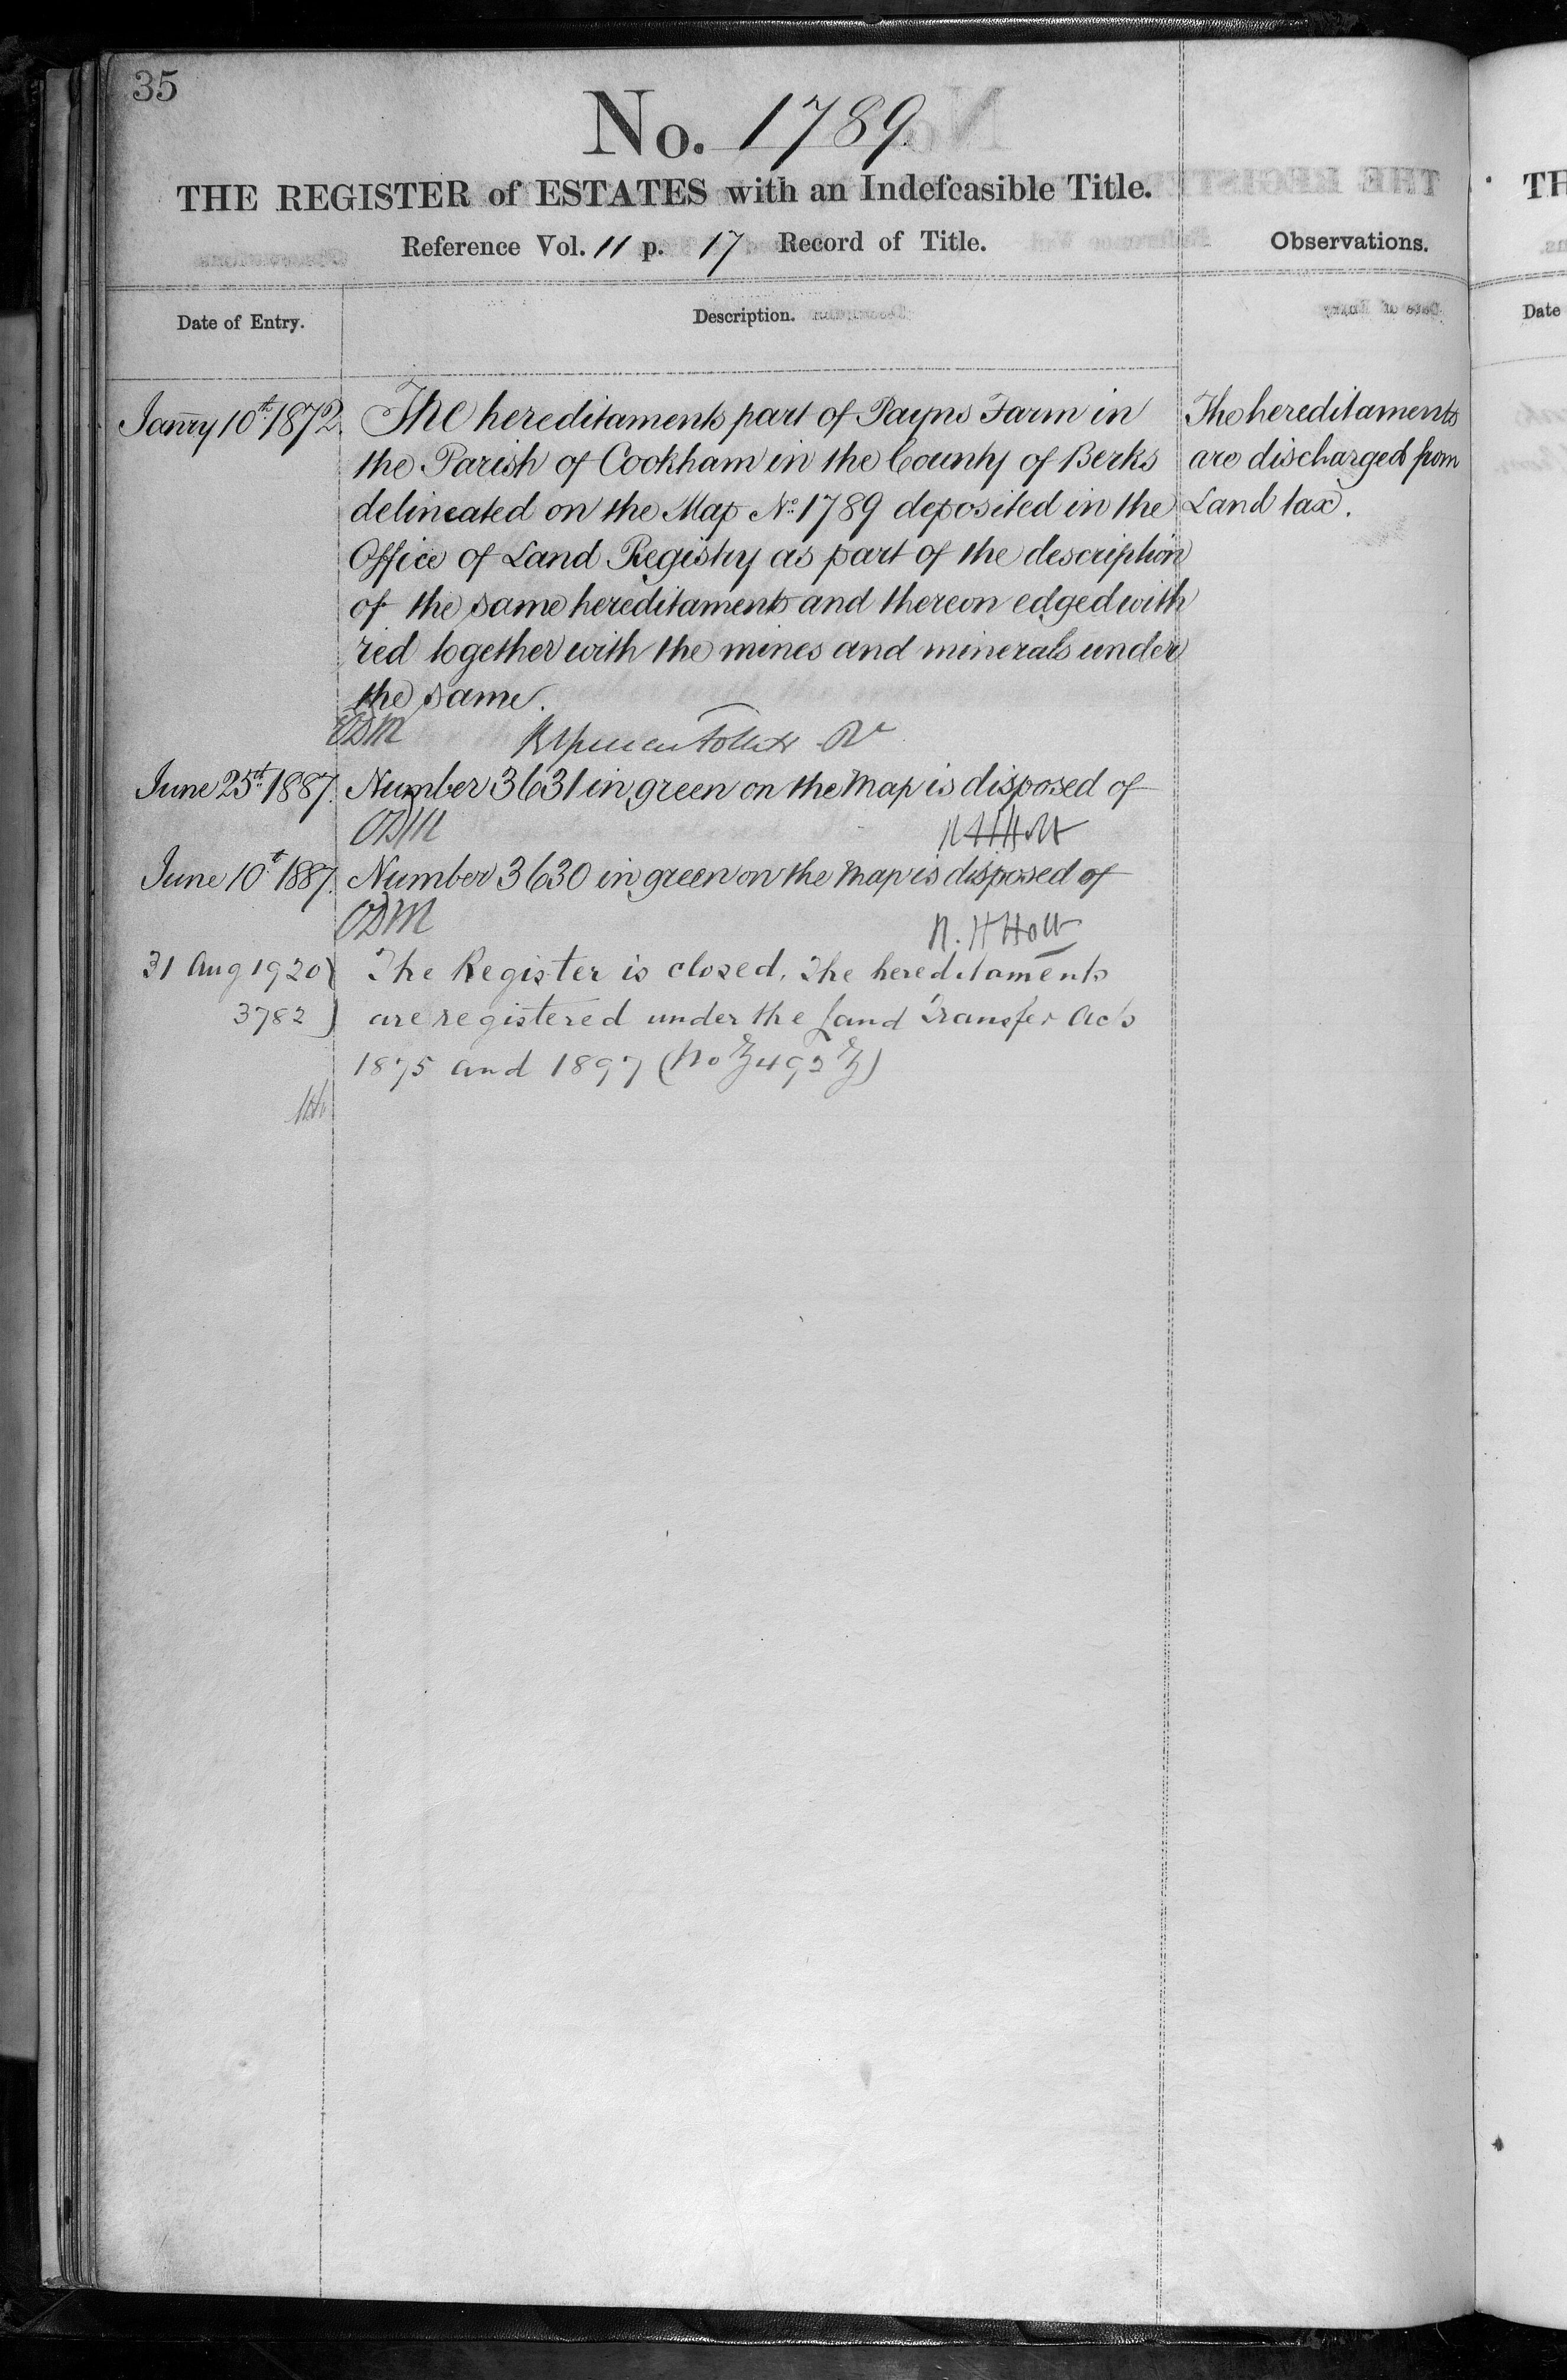 35
No. 1789.
THE REGISTER of ESTATES with an Indefeasible Title.
Reference Vol. 11 p. 17 Record of Title.
Observations.
Date of Entry.
Description.
Janry 10th 1872.
The hereditaments part of Payns Farm in
the Parish of Cookham in the County of Berks
delineated on the Map No. 1789 deposited in the
Office of Land Registry as part of the description
of the same hereditaments and thereon edged with
red together with the mines and minerals under
the same.
The hereditaments
are discharged from
Land tax.
June 25th 1887. Number 3631 in green on the Map is disposed of
ODM R H Holt
June 10th 1887. Number 3630 in green on the Map is disposed of
ODM R. H Holt
31 Aug 1920 The Register is closed. The hereditaments
3782 are registered under the Land Transfer Acts
1875 and 1897
TH
Date